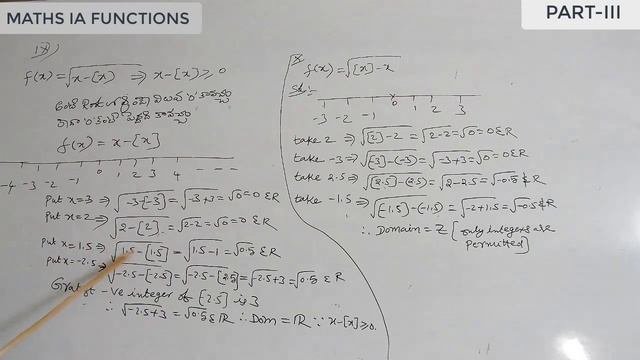 MATHS IA FUNCTIONS
PART-III
f(x) = √(x-[x]) ⇒ x-[x] ≥ 0
f(x) = x-[x]
-4 -3 -2 -1 0 1 2 3 4
put x=3 ⇒ √(-3-[-3]) = √(-3+3) = √0 = 0 ∈ R
put x=2 ⇒ √(2-[2]) = √(2-2) = √0 = 0 ∈ R
put x=1.5 ⇒ √(1.5-[1.5]) = √(1.5-1) = √0.5 ∈ R
put x=-2.5 ⇒ √(-2.5-[-2.5]) = √(-2.5-[2.5]) = √(-2.5+3) = √0.5 ∈ R
-ve integer of [2.5] is 3
∴ √(-2.5+3) = √0.5 ∈ R ∴ Dom = R ∵ x-[x] ≥ 0.
f(x) = √([x]-x)
Sol:-
-3 -2 -1 0 1 2 3
take 2 ⇒ √([2]-2) = √(2-2) = √0 = 0 ∈ R
take -3 ⇒ √([-3]-(-3)) = √(-3+3) = √0 = 0 ∈ R
take 2.5 ⇒ √([2.5]-(2.5)) = √(2-2.5) = √-0.5 ∉ R
take -1.5 ⇒ √([-1.5]-(-1.5)) = √(-2+1.5) = √-0.5 ∉ R
∴ Domain = Z [only integers are
permitted]